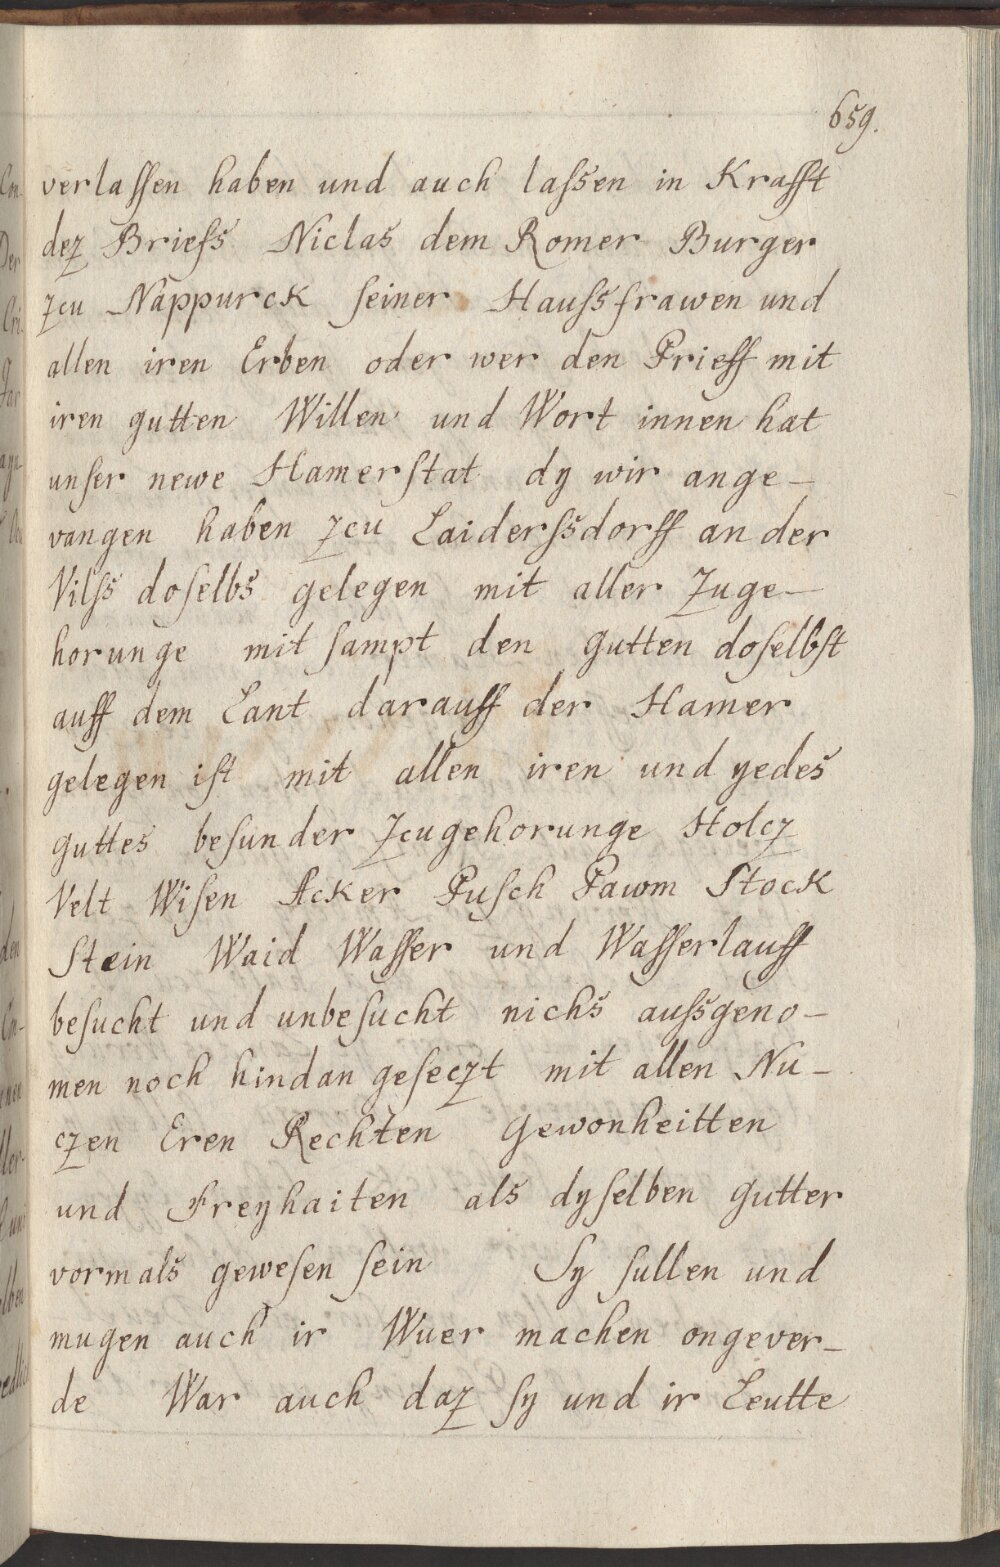 659.
verlassen haben und auch lassen in Krafft
dez Brieffs Niclas dem Romer Burger
zcu Näppurck seiner Haussfrawen und
allen iren Erben oder wer den Prieff mit
iren gutten Willen und Wort innen hat
unser newe Hamerstat dy wir ange-
vangen haben zcu Laiderssdorff an der
Vilss doselbs gelegen mit aller Zuge-
horunge mit sampt den Gutten doselbst
auff dem Lant darauff der Hamer
gelegen ist mit allen iren und yedes
guttes besunder zcugehorunge Holcz
Velt Wisen Acker Pusch Pawm Stock
Stein Waid Wasser und Wasserlauff
besucht und unbesucht nichs aussgeno-
men noch hindan geseczt mit allen Nu-
czen Eren Rechten Gewonheitten
und Freyhaiten als dyselben Gutter
vormals gewesen sein Sy sullen und
mugen auch ir Wuer machen ongever-
de War auch daz sy und ir Leutte